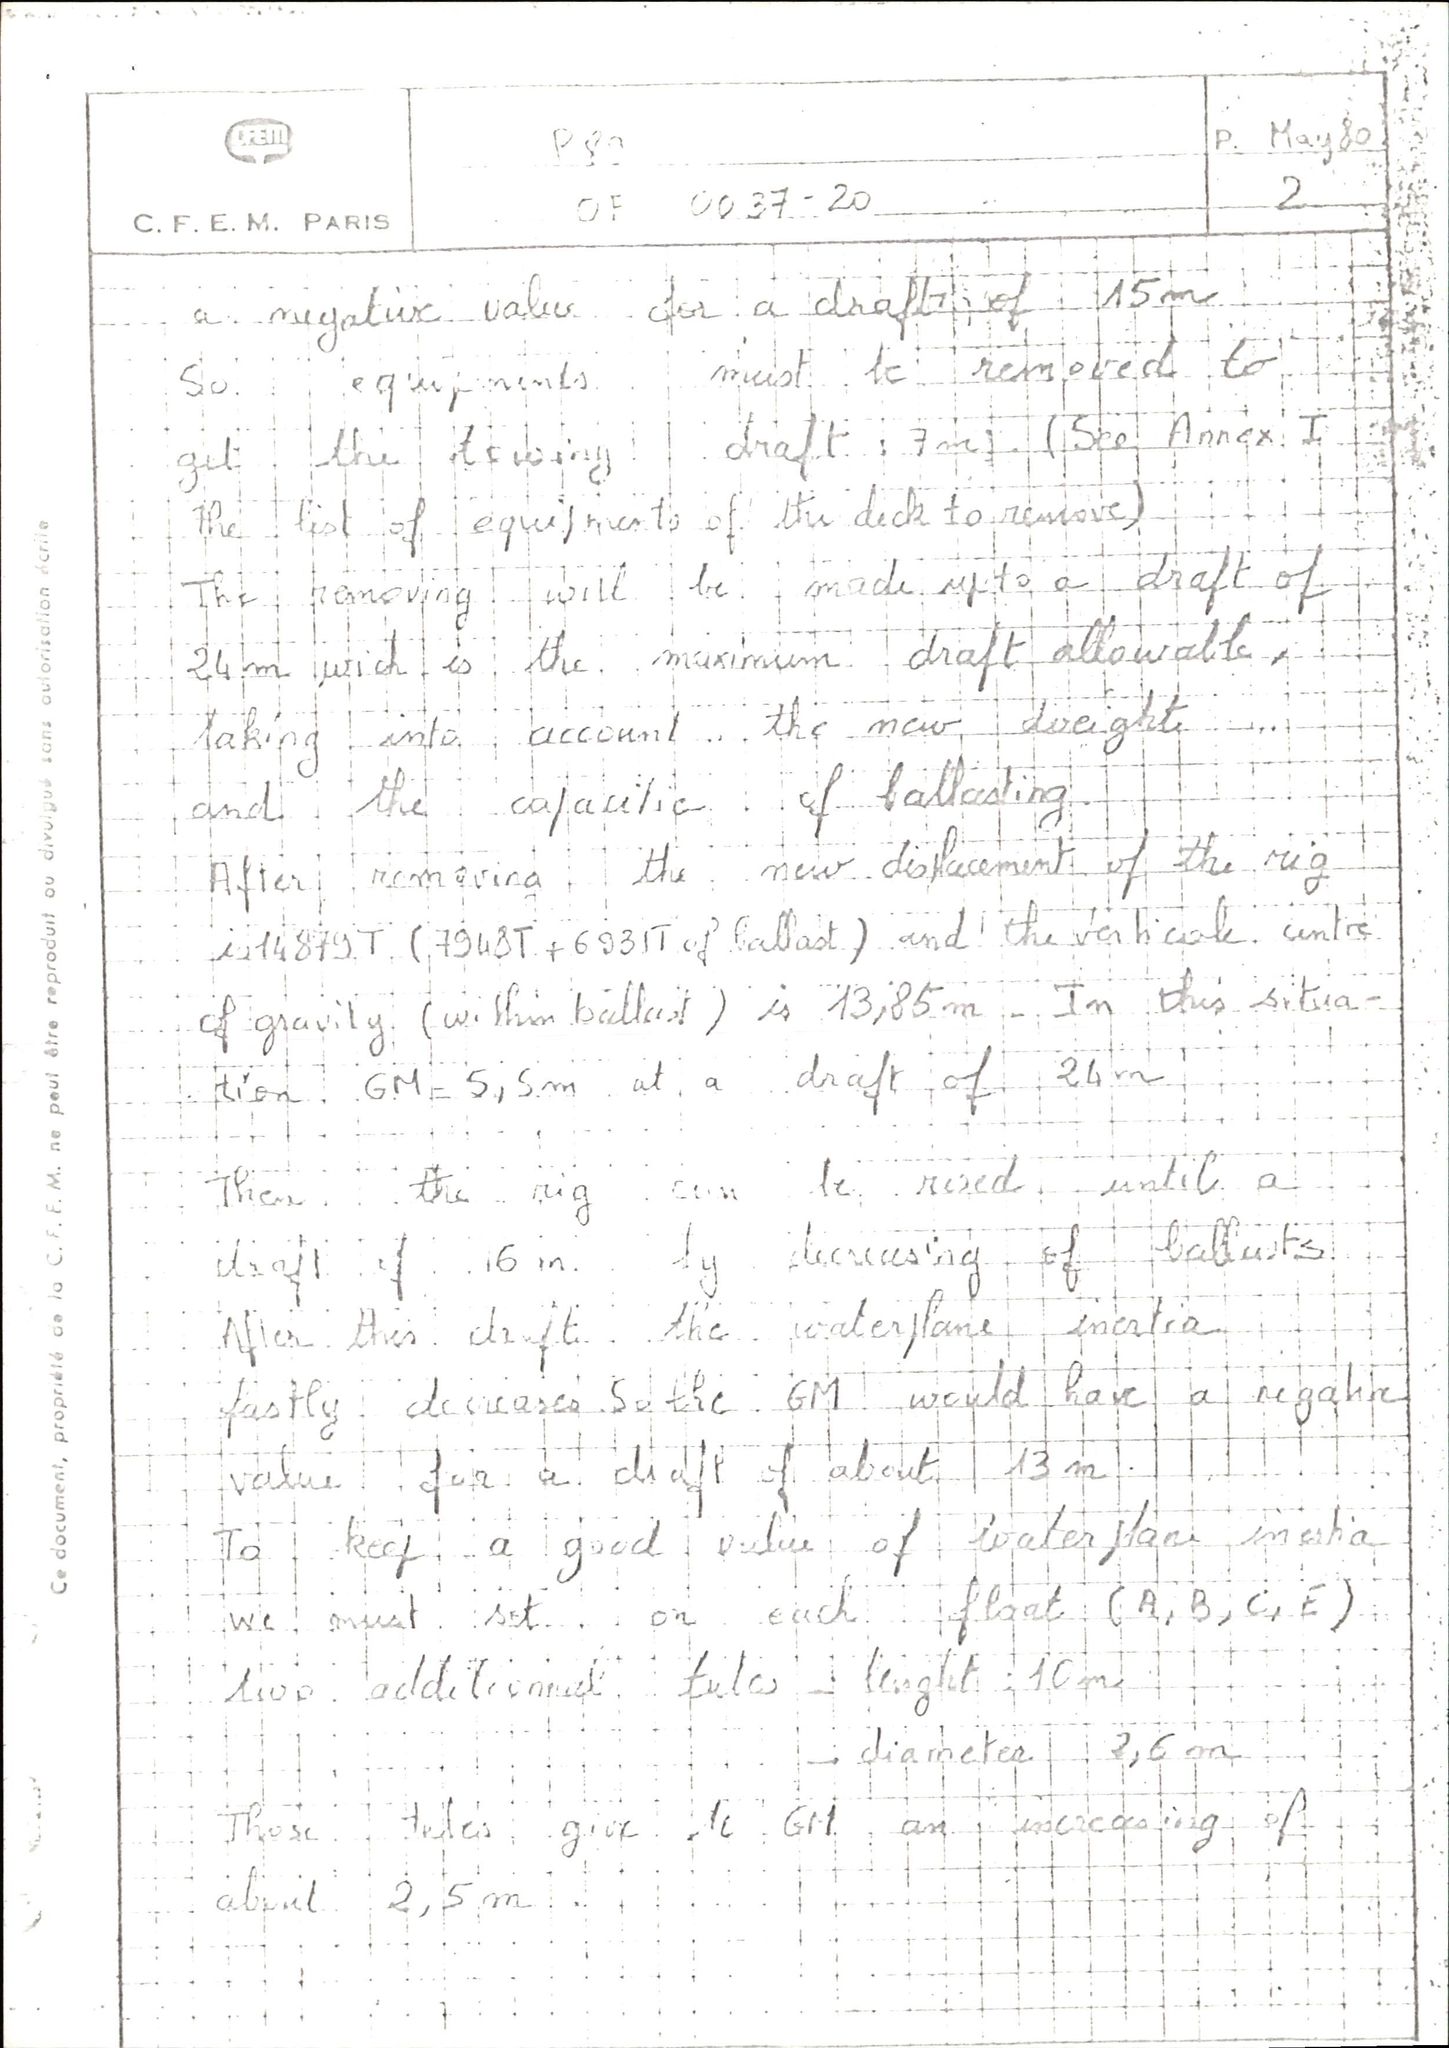 CFEM
C. F. E. M. PARIS
OF 0037-20
P. May 80
2
a negative value for a draft of 15m
So equipments must be removed to
get the towing draft : 7m. (See Annex I
the list of equipments of the deck to remove)
The removing will be made up to a draft of
24m wich is the maximum draft allowable,
taking into account the new weight
and the capacitie of ballasting
After removing the new displacement of the rig
is 14879T (7948T + 6931T of ballast) and the verticale centre
of gravity (within ballast) is 13,85m _ In this situa-
tion GM = 5,5m at a draft of 24m
Then the rig can be rised until a
draft of 16m by decreasing of ballasts
After this draft the waterplane inertia
fastly decreases So the GM would have a negative
value for a draft of about 13m
To keep a good value of waterplane inertia
we must set on each float (A, B, C, E)
two additionnal tubes _ lenght : 10m
_ diameter ,6m
Those tubes give to GM an increasing of
about 2,5m
Ce document, propriété de la C.F.E.M. ne peut être reproduit ou divulgué sans autorisation écrite